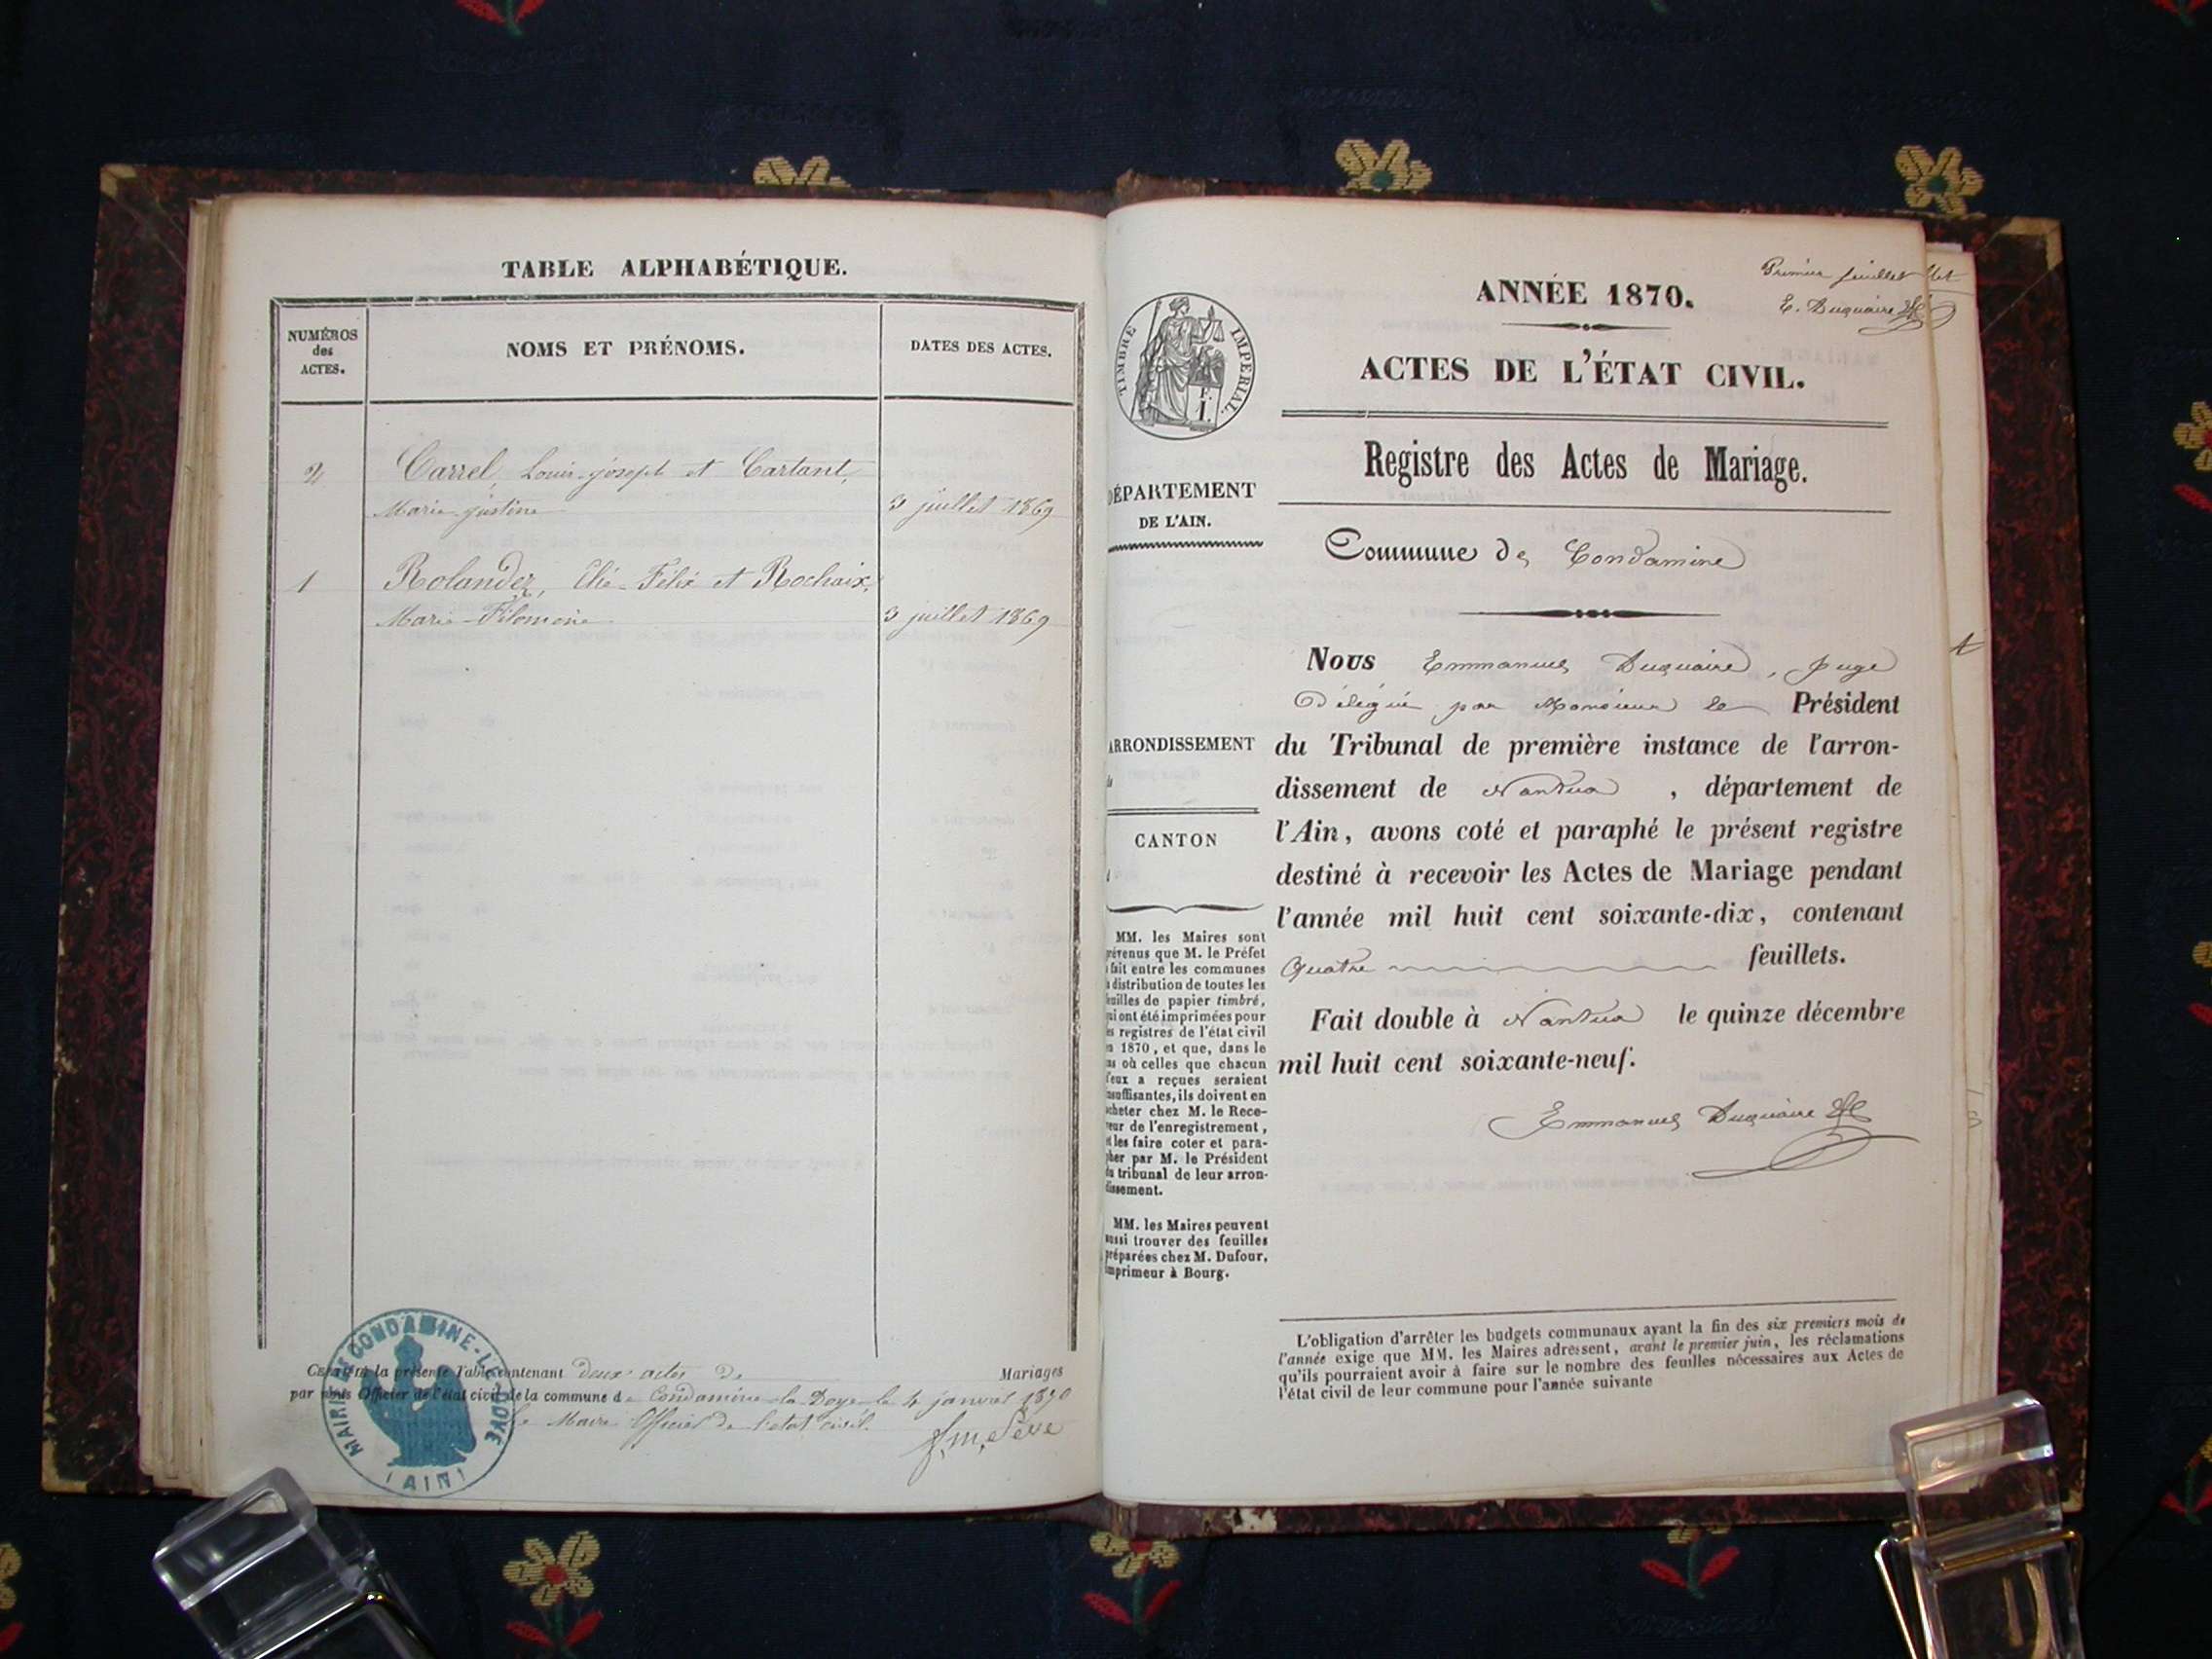 TABLE ALPHABÉTIQUE.
NUMÉROS
des
ACTES.
NOMS ET PRÉNOMS.
DATES DES ACTES.
2 Carrel, Louis-joseph et Cartant,
Marie-justine 3 juillet 1869
1 Rolandez, Elie-Félix et Rochaix,
Marie-Filomène 3 juillet 1869
Certifié la présente Table contenant deux actes de Mariages
par nous Officier de l'état civil de la commune de Condamine-la-Doye le 4 janvier 1870
Le Maire Officier de l'état civil.
J. m. Sève
MAIRIE DE CONDAMINE-LA-DOYE
(AIN)
Premier feuillet
E. Duquaire
TIMBRE IMPÉRIAL.
1
F.
DÉPARTEMENT
DE L'AIN.
ARRONDISSEMENT
CANTON
MM. les Maires sont
prévenus que M. le Préfet
a fait entre les communes
la distribution de toutes les
feuilles de papier timbré,
qui ont été imprimées pour
les registres de l'état civil
en 1870, et que, dans le
cas où celles que chacun
d'eux a reçues seraient
insuffisantes, ils doivent en
acheter chez M. le Rece-
veur de l'enregistrement,
et les faire coter et para-
pher par M. le Président
du tribunal de leur arron-
dissement.
MM. les Maires peuvent
aussi trouver des feuilles
préparées chez M. Dufour,
imprimeur à Bourg.
ANNÉE 1870.
ACTES DE L'ÉTAT CIVIL.
Registre des Actes de Mariage.
Commune de Condamine
Nous Emmanuel Duquaire, juge
Délégué par Monsieur le Président
du Tribunal de première instance de l'arron-
dissement de Nantua, département de
l'Ain, avons coté et paraphé le présent registre
destiné à recevoir les Actes de Mariage pendant
l'année mil huit cent soixante-dix, contenant
Quatre feuillets.
Fait double à Nantua le quinze décembre
mil huit cent soixante-neuf.
Emmanuel Duquaire
L'obligation d'arrêter les budgets communaux avant la fin des six premiers mois de
l'année exige que MM. les Maires adressent, avant le premier juin, les réclamations
qu'ils pourraient avoir à faire sur le nombre des feuilles nécessaires aux Actes de
l'état civil de leur commune pour l'année suivante